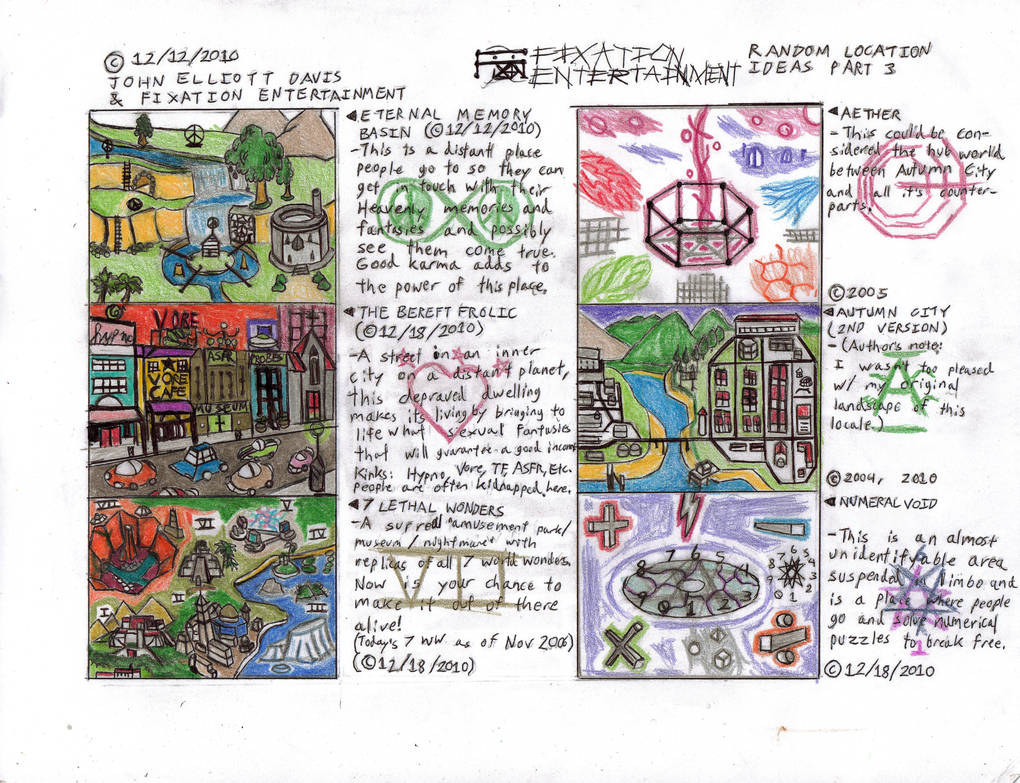 © 12/12/2010
JOHN ELLIOTT DAVIS
& FIXATION ENTERTAINMENT
FIXATION
ENTERTAINMENT
RANDOM LOCATION
IDEAS PART 3
ETERNAL MEMORY
BASIN (©12/12/2010)
-This is a distant place
people go to so they can
get in touch with their
Heavenly memories and
fantasies and possibly
see them come true.
Good karma adds to
the power of this place.
VORE
VORE
CAFE
ASFR
MUSEUM
THE BEREFT FROLIC
(©12/18/2010)
-A street in an inner
city on a distant planet,
this depraved dwelling
makes its living by bringing to
life what sexual fantasies
that will guarantee a good income
Kinks: Hypno, Vore, TF, ASFR, Etc.
People are often kidnapped here.
I
IV
V
VI
7 LETHAL WONDERS
-A surreal "amusement park/
museum/nightmare" with
replicas of all 7 world wonders.
Now is your chance to
make it out of there
alive!
(Today's 7 WW as of Nov 2006)
(©12/18/2010)
VII
AETHER
-This could be con-
sidered the hub world
between Autumn City
and all it's counter-
parts.
©2005
AUTUMN CITY
(2ND VERSION)
- (Author's note:
I wasn't too pleased
w/ my original
landscape of this
locale.)
A
©2004, 2010
7 6 5 4 3 2 1 0 9 8
7 6 5 4 3 2 1 0 9 8
NUMERAL VOID
-This is an almost
unidentifyable area
suspended in limbo and
is a place where people
go and solve numerical
puzzles to break free.
©12/18/2010